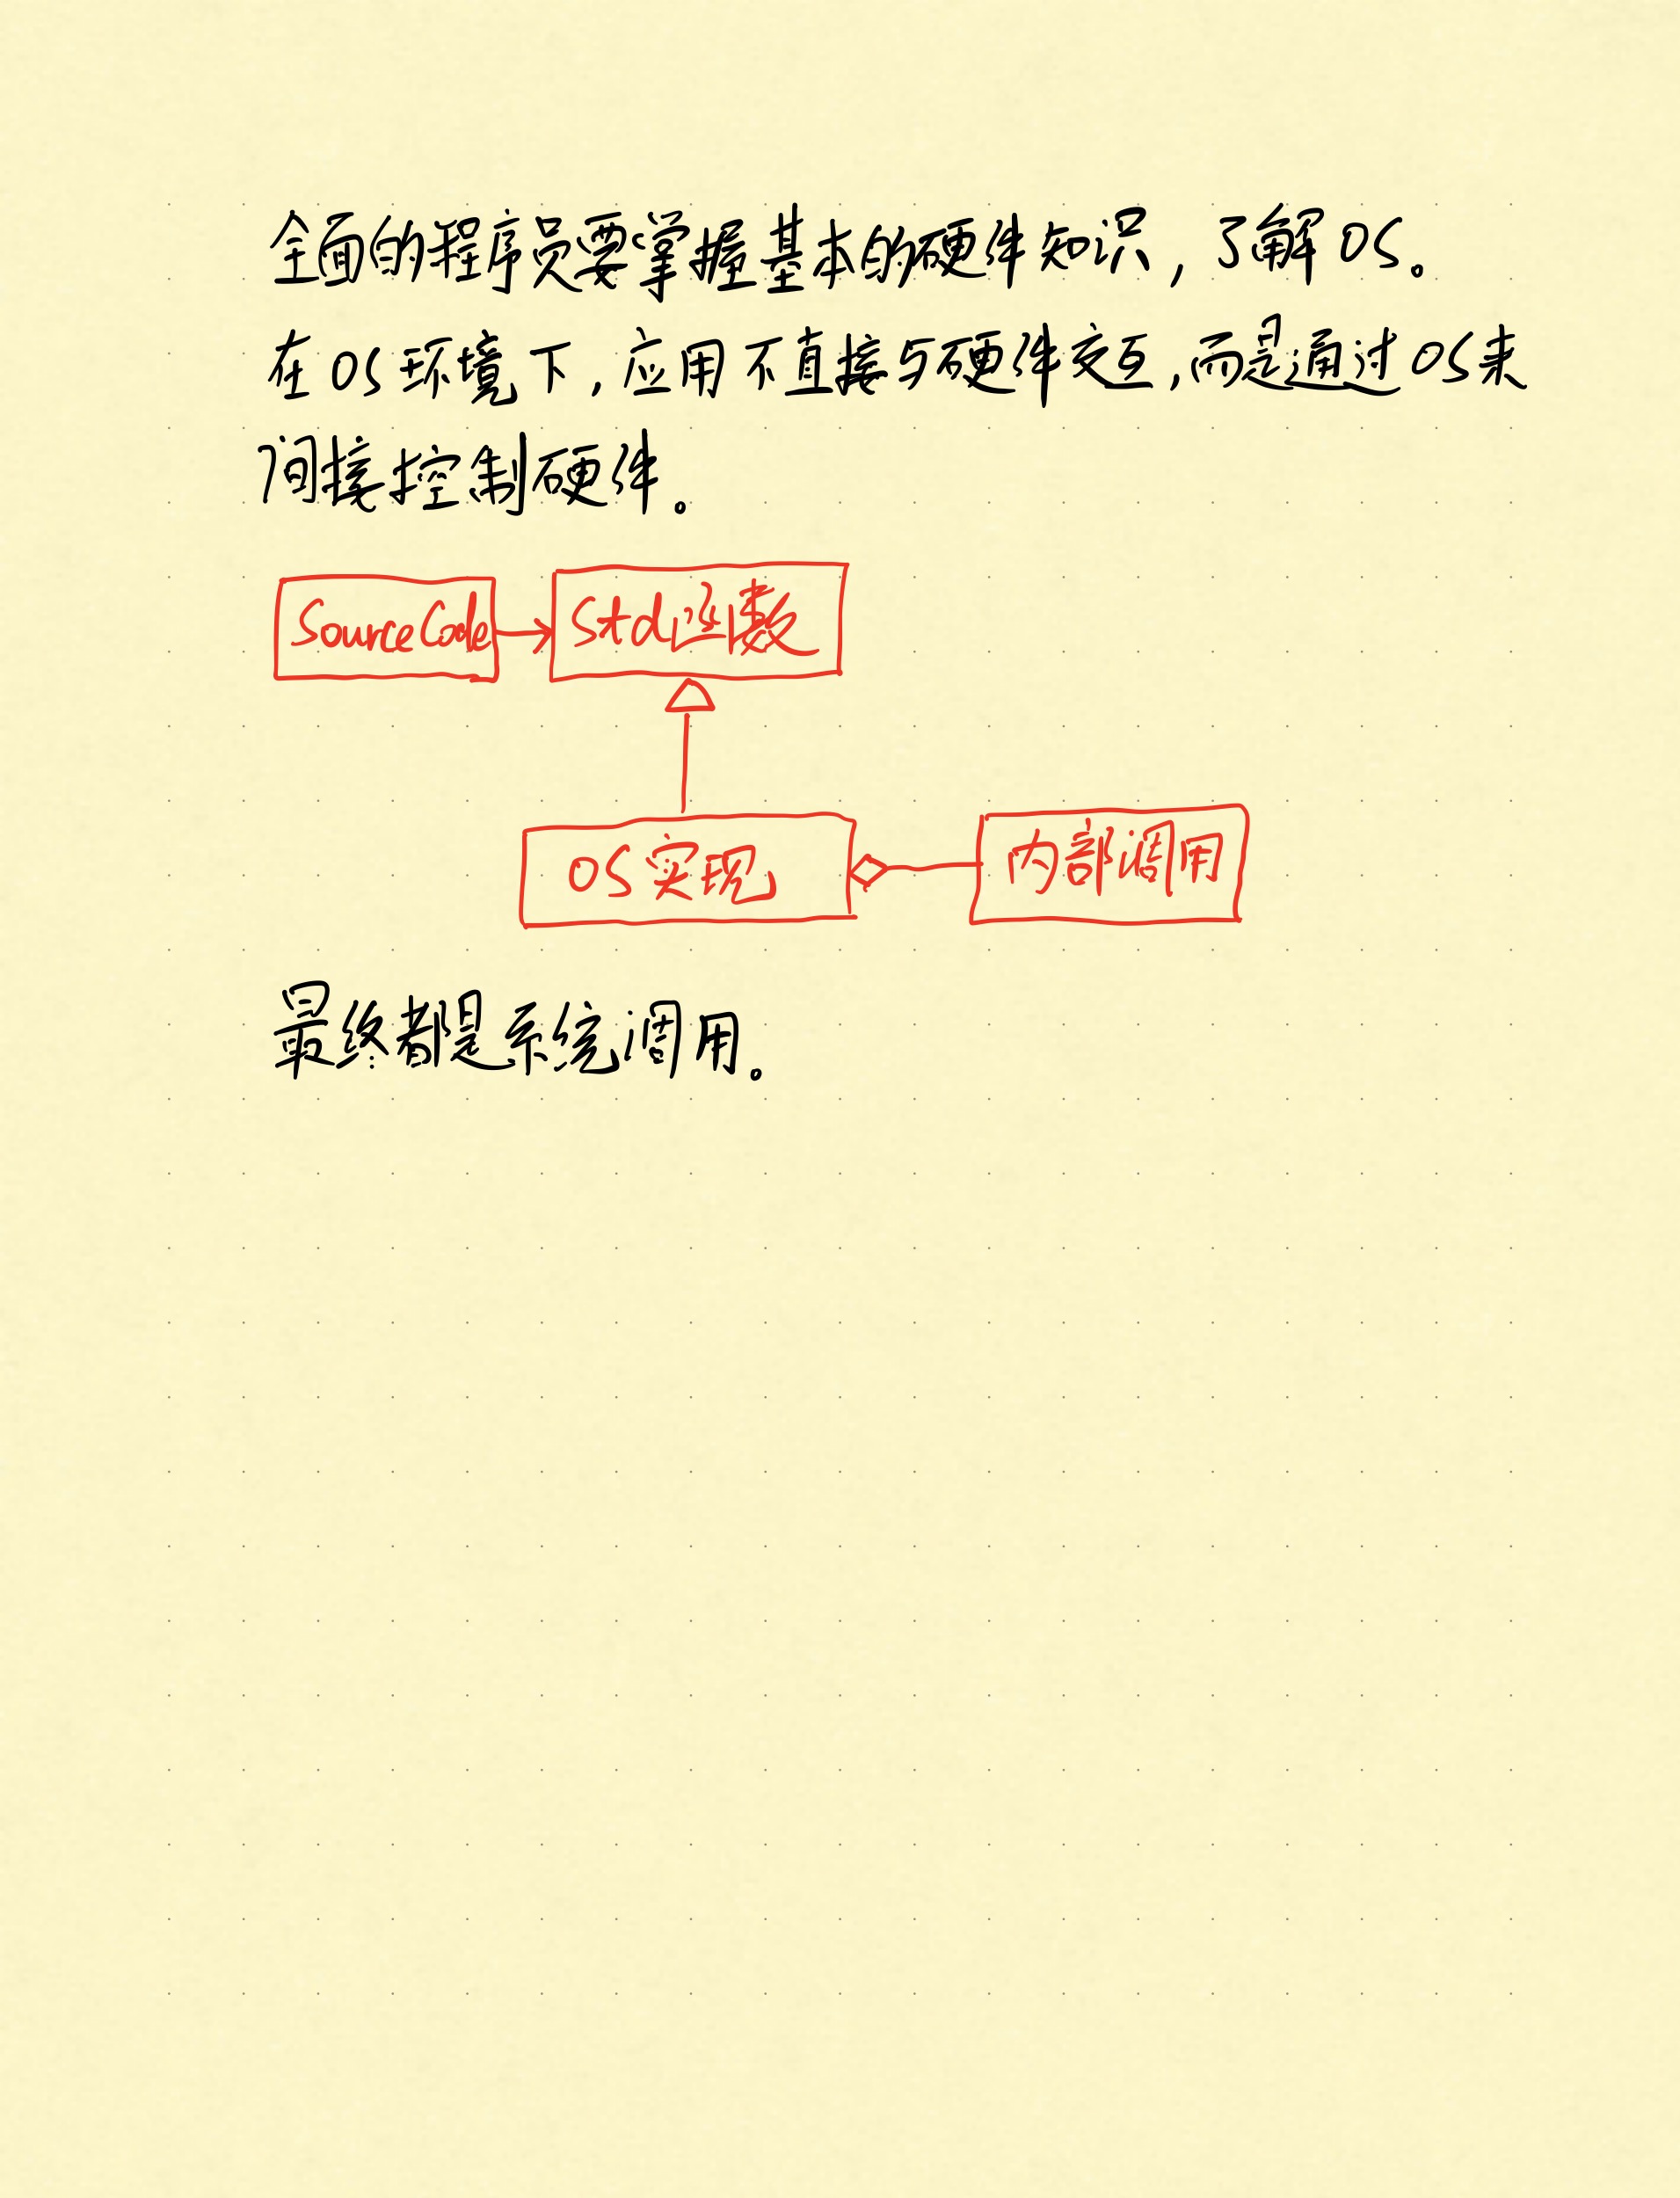 全面的程序员要掌握基本的硬件知识，了解OS。
在OS环境下，应用不直接与硬件交互，而是通过OS来
间接控制硬件。
SourceCode
Std函数
OS实现
内部调用
最终都是系统调用。